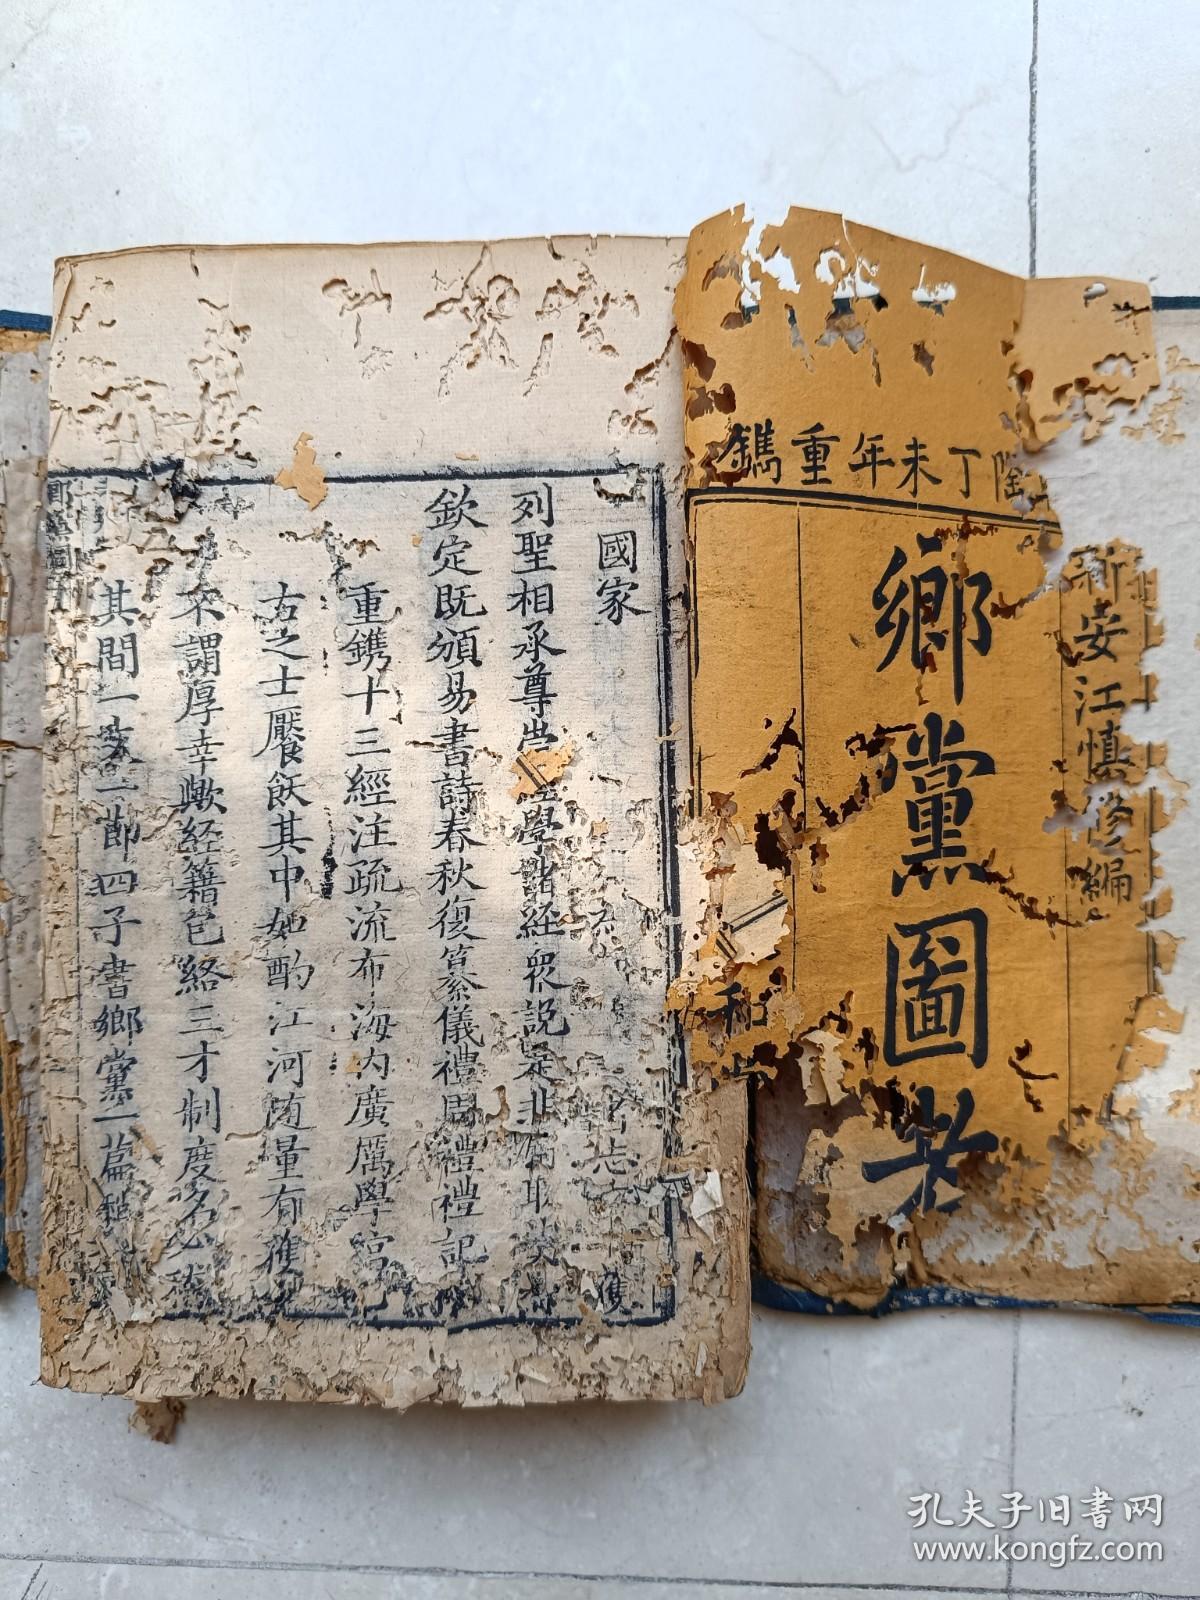 丁未年重鐫
新安江慎修編
鄉黨圖考
和
國家
列聖相承尊崇經學諸經衆說是非
欽定既頒易書詩春秋復纂儀禮周禮禮記
重鐫十三經注疏流布海內廣厲學宮
古之士饜飫其中如酌江河随量有獲
不謂厚幸歟经籍包絡三才制度名
其間一文一節四子書鄉黨一篇
孔夫子旧书网
www.kongfz.com